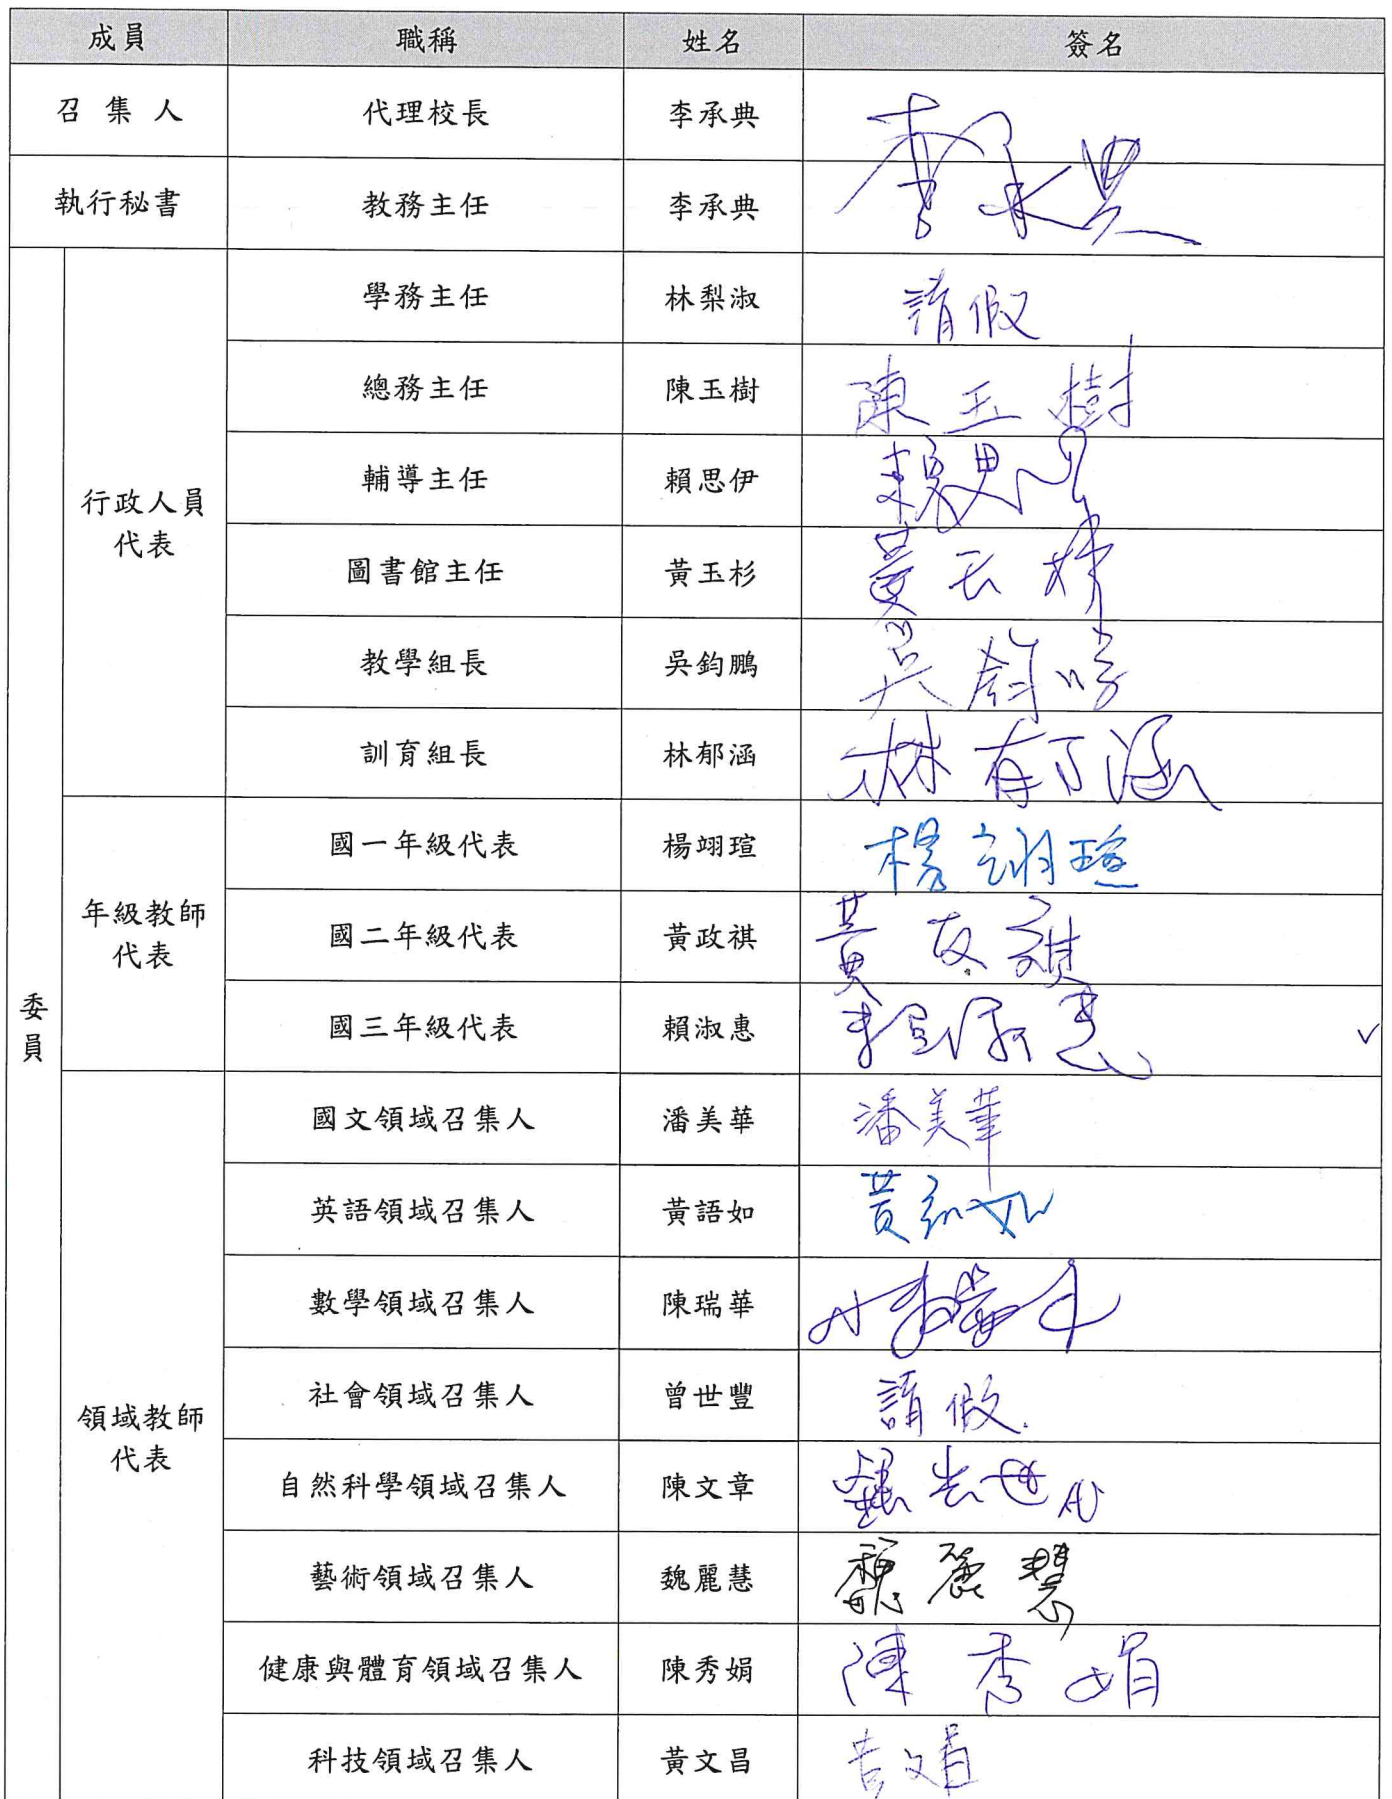 成員 職稱 姓名 簽名
召集人 代理校長 李承典 李承典
執行秘書 教務主任 李承典
委員
行政人員
代表
學務主任 林梨淑 請假
總務主任 陳玉樹 陳玉樹
輔導主任 賴思伊 賴思伊
圖書館主任 黃玉杉 黃玉杉
教學組長 吳鈞鵬 吳鈞鵬
訓育組長 林郁涵 林郁涵
年級教師
代表
國一年級代表 楊翊瑄 楊翊瑄
國二年級代表 黃政祺 黃政祺
國三年級代表 賴淑惠 賴淑惠
領域教師
代表
國文領域召集人 潘美華 潘美華
英語領域召集人 黃語如 黃語如
數學領域召集人 陳瑞華
社會領域召集人 曾世豐 請假.
自然科學領域召集人 陳文章
藝術領域召集人 魏麗慧 魏麗慧
健康與體育領域召集人 陳秀娟 陳秀娟
科技領域召集人 黃文昌